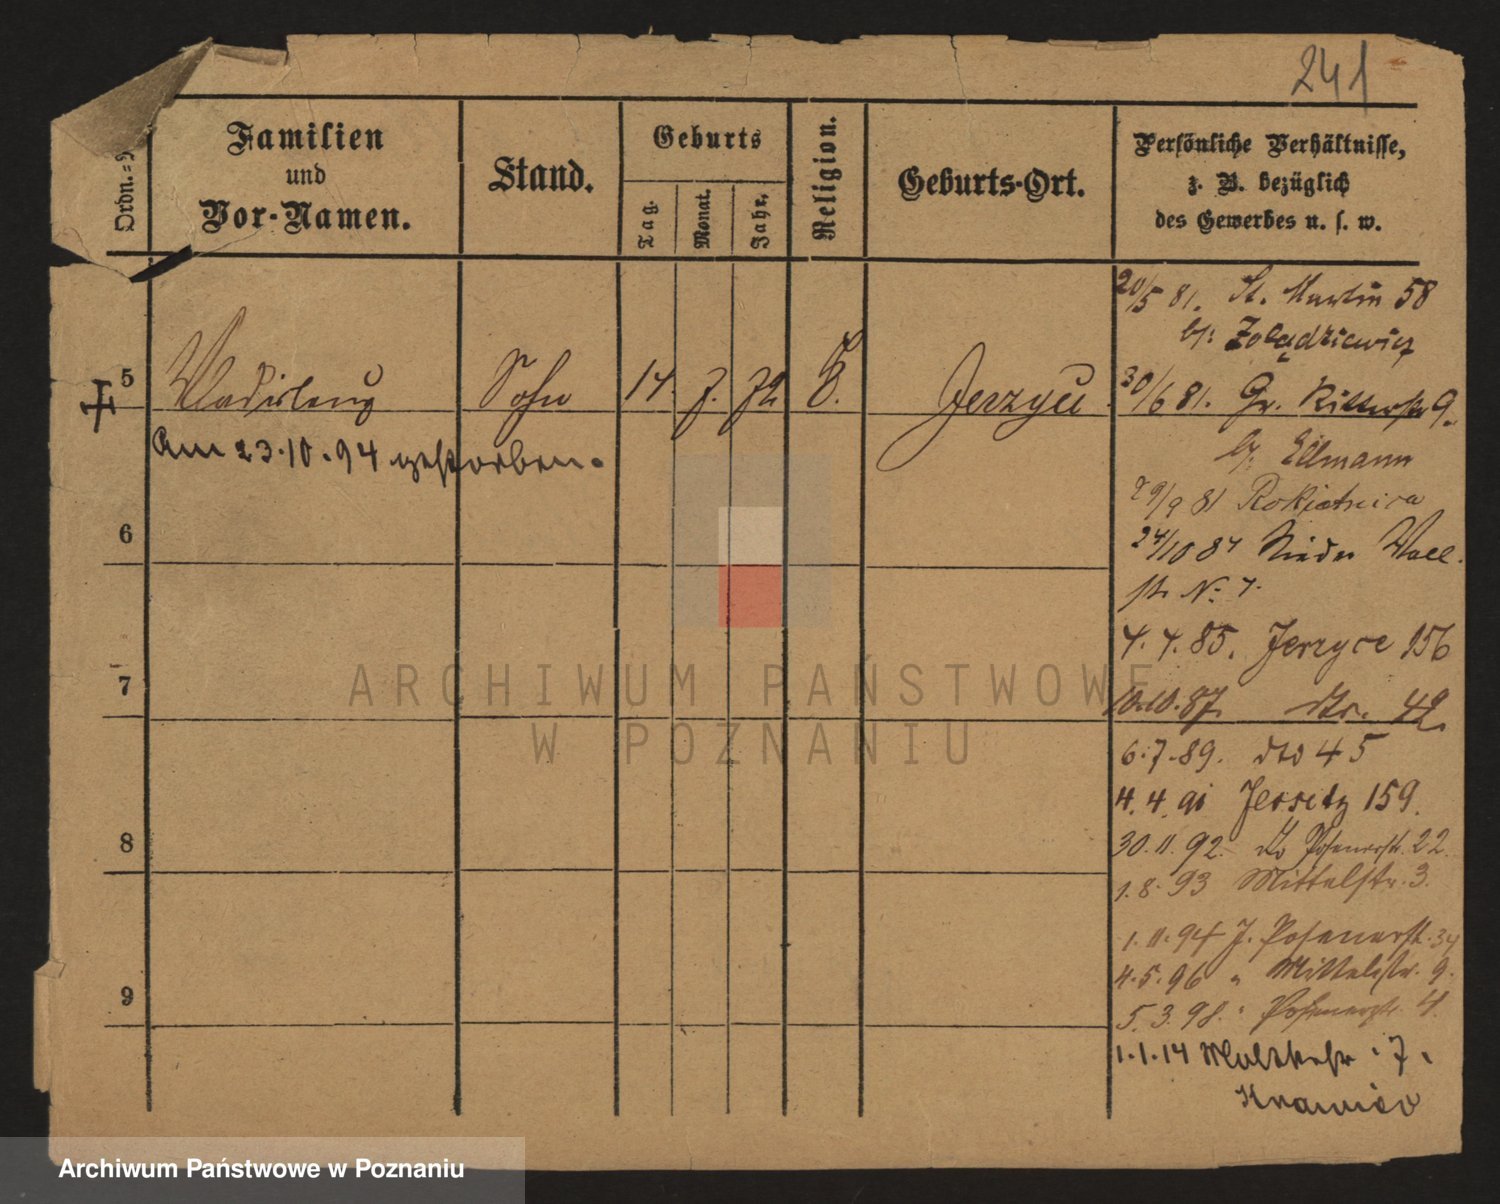 241
Ordn.=
Familien
und
Vor-Namen.
Stand.
Geburts
Tag.
Monat.
Jahr.
Religion.
Geburts-Ort.
Persönliche Verhältnisse,
z. B. bezüglich
des Gewerbes u. s. w.
5
Wladislaus
Sohn
14. 7. 72
Jerzyce
am 23.10.94 gestorben.
6
7
8
9
20/5 81. St. Martin 58
b/: Żołądkiewicz
30/6 81. Gr. Ritterstr 9.
b/: Ellmann
29/9 81 Rokietnica
24/10 84 Nieder Wall
str No 7.
4. 4. 85. Jerzyce 156
10.10.87. dto. 42.
6.7.89. dto 45
4. 4. 91 Jersitz 159.
30.11.92. do Posenerstr. 22
1.8.93 Mittelstr. 3.
1.11.94 J. Posenerstr. 34
4.5.96 " Mittelstr. 9.
5.3.98. " Posenerstr. 4.
1.1.14 Moltkestr. 7.
ARCHIWUM PAŃSTWOWE
W POZNANIU
Archiwum Państwowe w Poznaniu